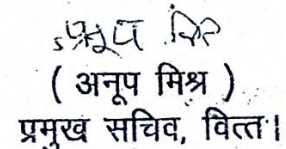 ( अनूप मिश्र )
प्रमुख सचिव, वित्त।